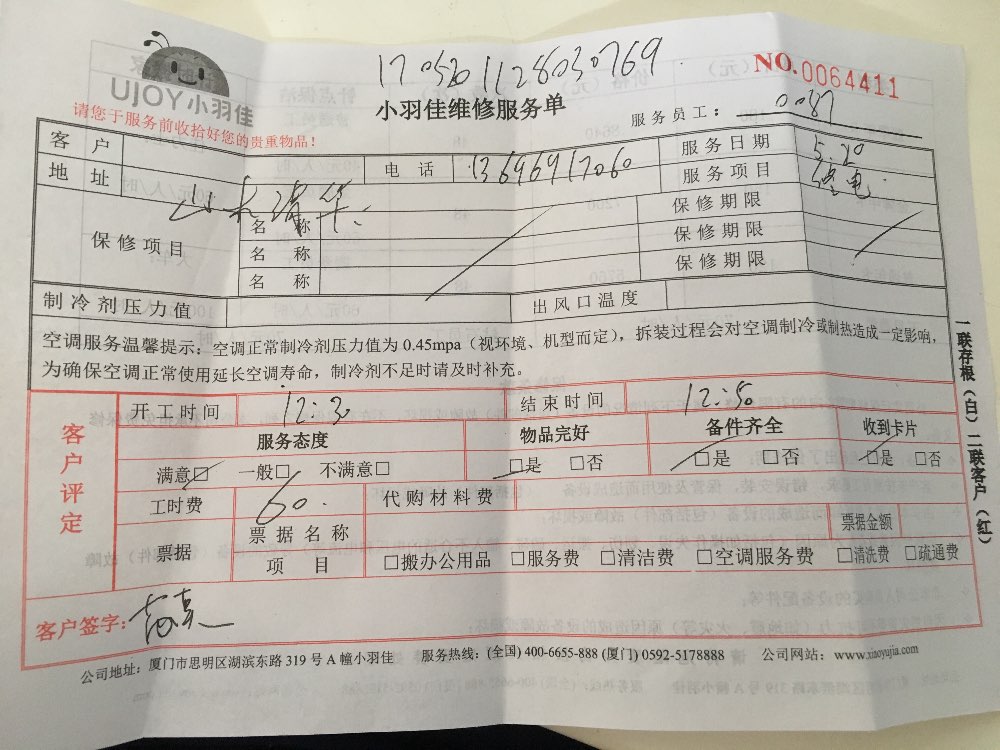 170520112803​0769
NO.0064411
UJOY小羽佳
小羽佳维修服务单
请您于服务前收拾好您的贵重物品！
服务员工：0087
客户 电话 13696917060 服务日期 5.20
地址 服务项目
保修项目 名称 保修期限
名称 保修期限
名称 保修期限
制冷剂压力值 出风口温度
空调服务温馨提示：空调正常制冷剂压力值为 0.45mpa（视环境、机型而定），拆装过程会对空调制冷或制热造成一定影响，
为确保空调正常使用延长空调寿命，制冷剂不足时请及时补充。
客户评定
开工时间 12:30 结束时间 12:50
服务态度 物品完好 备件齐全 收到卡片
满意□ 一般□ 不满意□ □是 □否 □是 □否 □是 □否
工时费 60. 代购材料费
票据 票据名称 票据金额
项目 □搬办公用品 □服务费 □清洁费 □空调服务费 □清洗费 □疏通费
客户签字：
公司地址：厦门市思明区湖滨东路 319 号 A 幢小羽佳 服务热线：(全国) 400-6655-888 (厦门) 0592-5178888 公司网站：www.xiaoyujia.com
一联存根（白）二联客户（红）